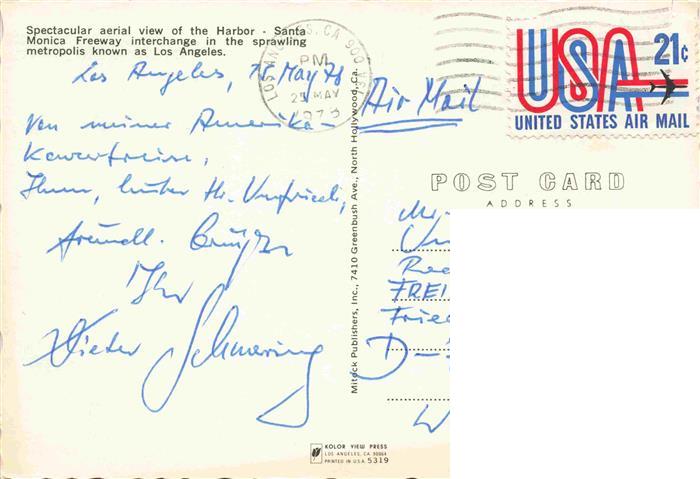 Spectacular aerial view of the Harbor - Santa
Monica Freeway interchange in the sprawling
metropolis known as Los Angeles.
LOS ANGELES, CA 900
PM
MAY
USA 21¢
UNITED STATES AIR MAIL
Los Angeles, May
Air Mail
Von meiner Amerika-
Ihnen, lieber Hr.
freundl. Grüße
Ihr
Dieter Schnering
Mitock Publishers, Inc., 7410 Greenbush Ave., North Hollywood, Ca.
POST CARD
ADDRESS
FREI
Frie
D-
W
KOLOR VIEW PRESS
LOS ANGELES, CA 90064
PRINTED IN U.S.A. 5319